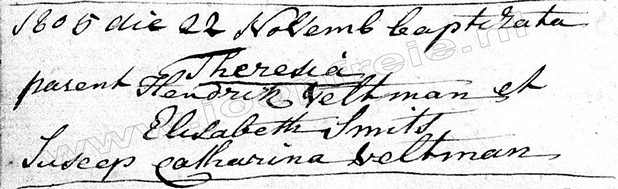 1805 die 22 Novemb baptizata
Theresia
parent Hendrik Veltman et
Elisabeth Smits
Suscep Catharina Veltman